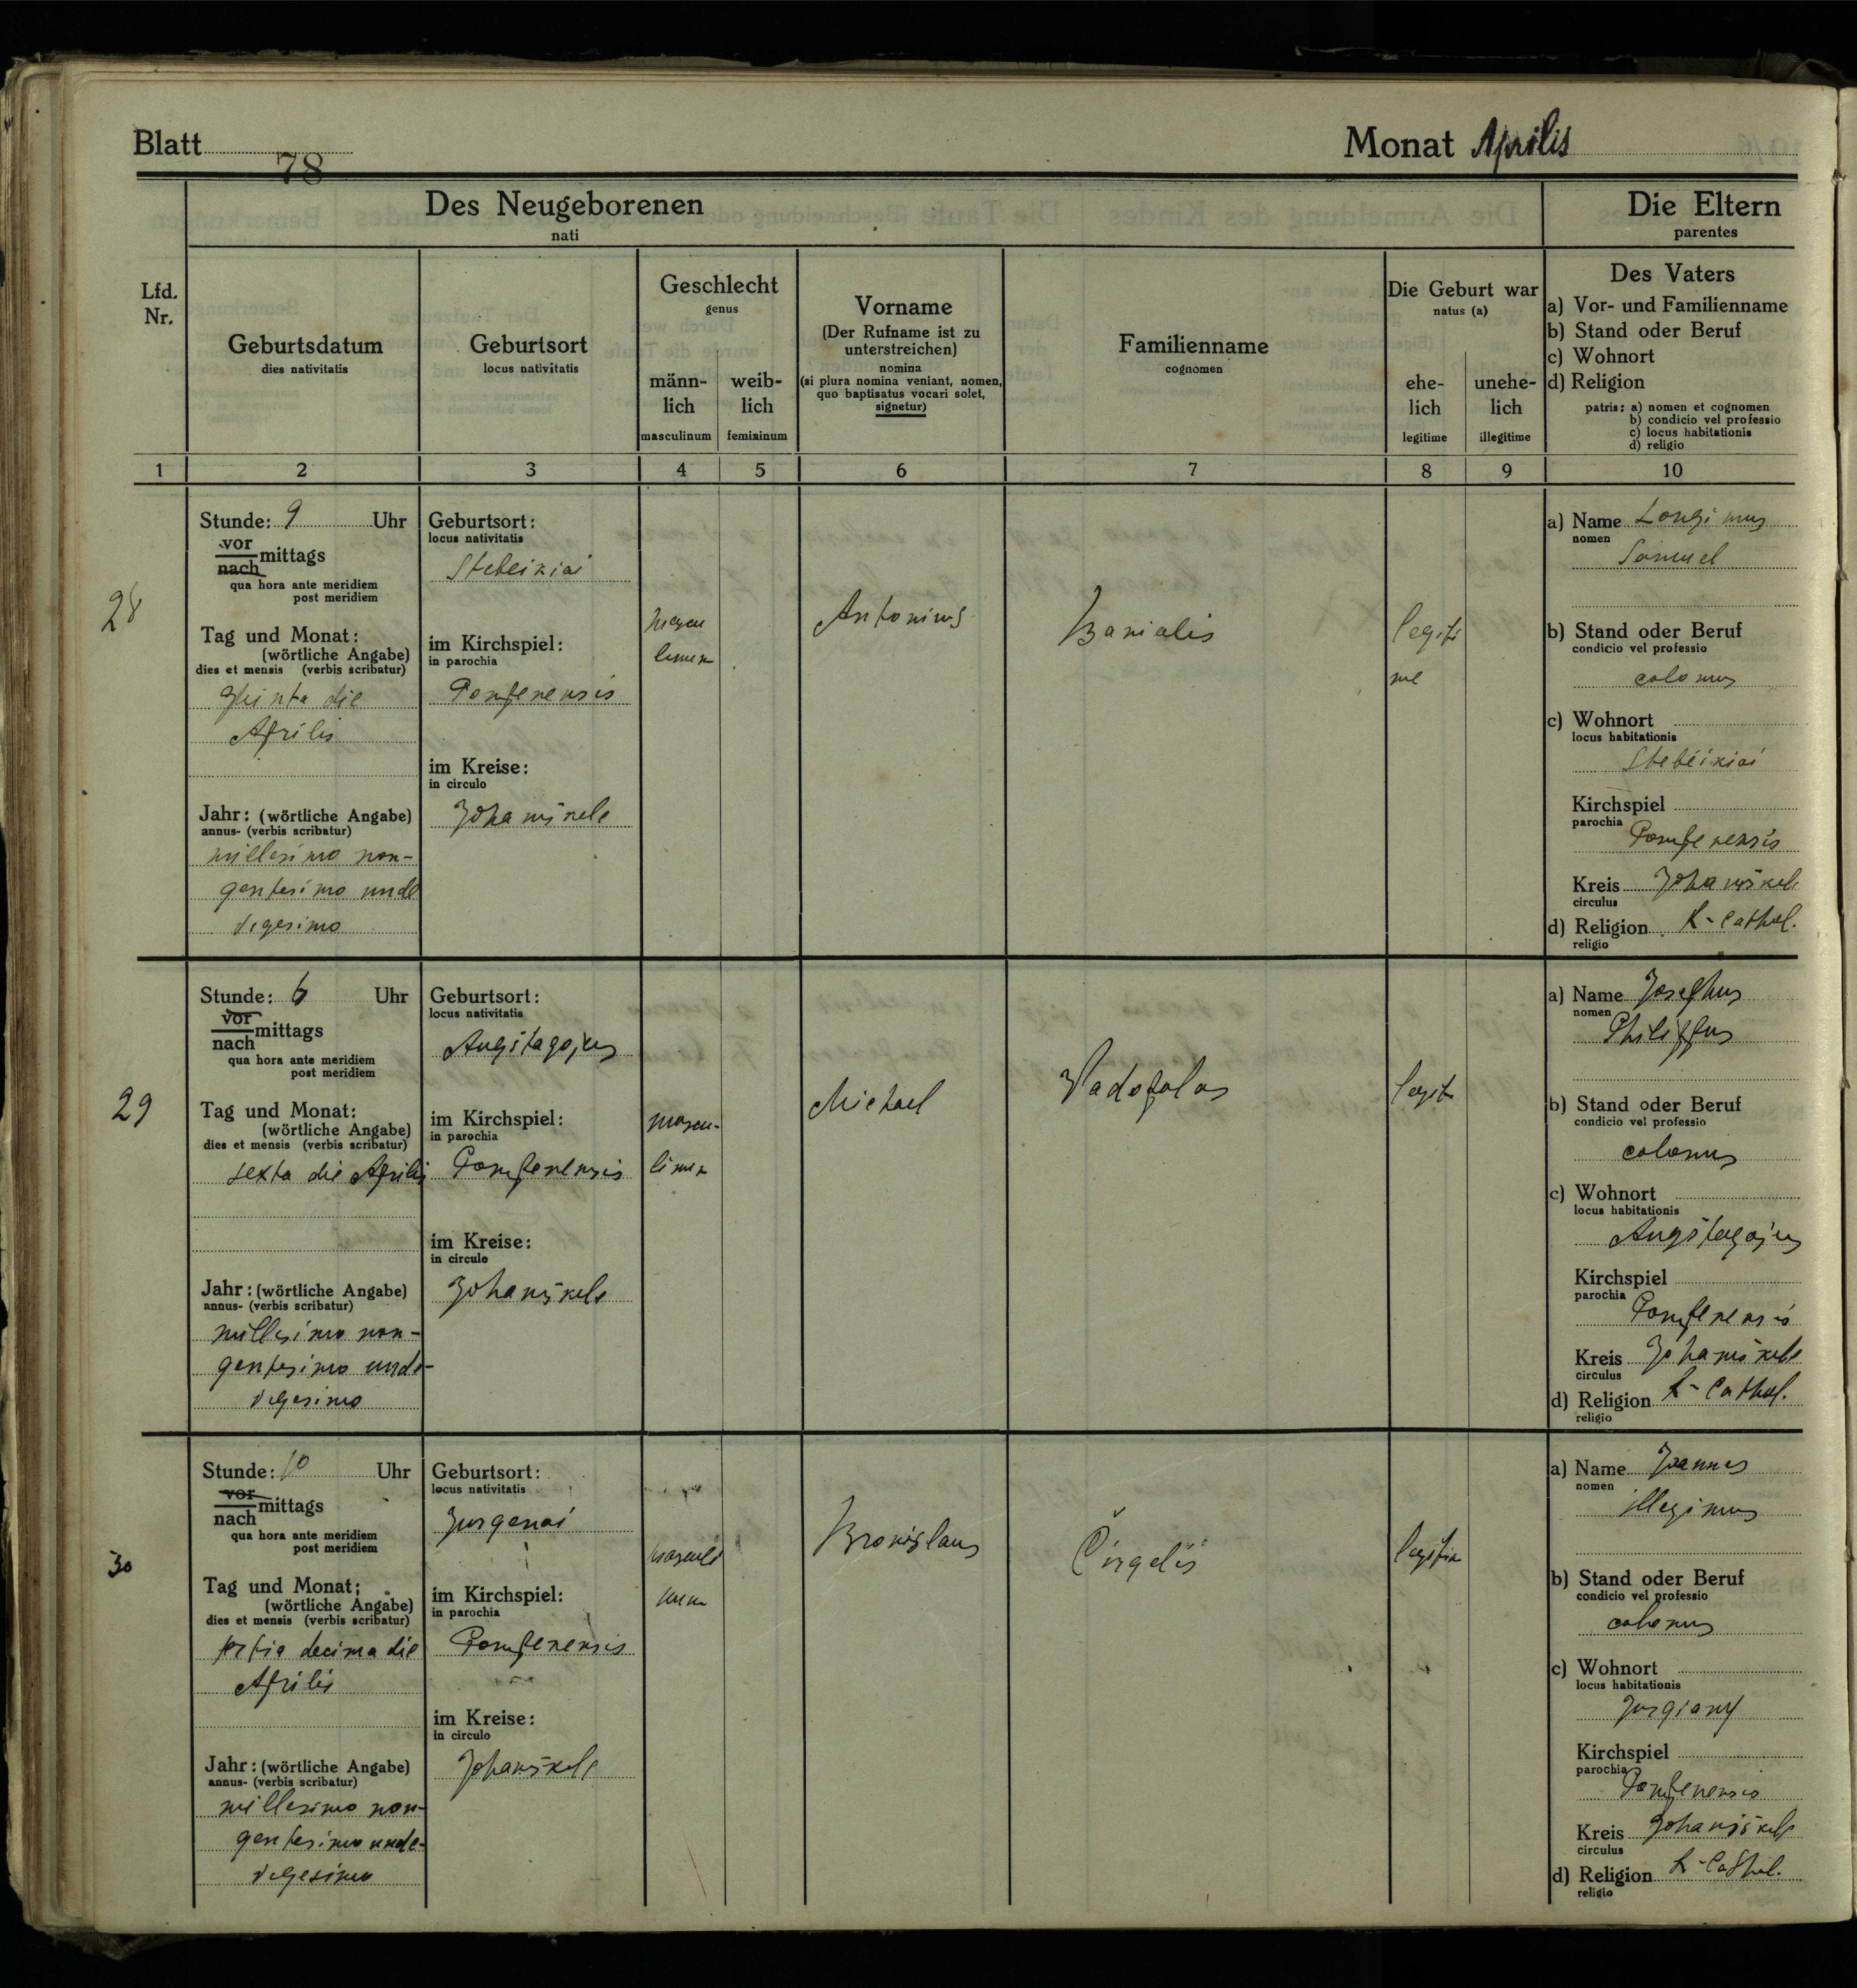 Blatt 78
Monat Aprilis
Des Neugeborenen
nati
Die Eltern
parentes
Lfd. Nr.
Geburtsdatum
dies nativitatis
Geburtsort
locus nativitatis
Geschlecht
genus
männ-
lich
masculinum
weib-
lich
femininum
Vorname
(Der Rufname ist zu
unterstreichen)
nomina
(si plura nomina veniant, nomen,
quo baptisatus vocari solet,
signetur)
Familienname
cognomen
Die Geburt war
natus (a)
ehe-
lich
legitime
unehe-
lich
illegitime
Des Vaters
a) Vor- und Familienname
b) Stand oder Beruf
c) Wohnort
d) Religion
patris: a) nomen et cognomen
b) condicio vel professio
c) locus habitationis
d) religio
1 2 3 4 5 6 7 8 9 10
28
Stunde: 9 Uhr
vor
nach mittags
qua hora ante meridiem
post meridiem
Tag und Monat:
(wörtliche Angabe)
dies et mensis (verbis scribatur)
Quinta die
Aprilis
Jahr: (wörtliche Angabe)
annus- (verbis scribatur)
millesimo non-
gentesimo unde
vigesimo
Geburtsort:
locus nativitatis
Stebeikiai
im Kirchspiel:
in parochia
Pompenensis
im Kreise:
in circulo
Johaniškele
Antonius
legiti
me
a) Name
nomen
Samuel
b) Stand oder Beruf
condicio vel professio
colonus
c) Wohnort
locus habitationis
Stebeikiai
Kirchspiel
parochia
Pompenensis
Kreis Johaniškele
circulus
d) Religion R-Cathol.
religio
29
Stunde: 6 Uhr
vor
nach mittags
qua hora ante meridiem
post meridiem
Tag und Monat:
(wörtliche Angabe)
dies et mensis (verbis scribatur)
sexta die Aprilis
Jahr: (wörtliche Angabe)
annus- (verbis scribatur)
millesimo non-
gentesimo unde-
vigesimo
Geburtsort:
locus nativitatis
im Kirchspiel:
in parochia
Pompenensis
im Kreise:
in circulo
Johaniškele
Michael
Vadopolas
legiti
a) Name Josephus
nomen
Philippus
b) Stand oder Beruf
condicio vel professio
colonus
c) Wohnort
locus habitationis
Kirchspiel
parochia
Pompenensis
Kreis Johaniškele
circulus
d) Religion R-Cathol.
religio
30
Stunde: 10 Uhr
vor
nach mittags
qua hora ante meridiem
post meridiem
Tag und Monat:
(wörtliche Angabe)
dies et mensis (verbis scribatur)
tertia decima die
Aprilis
Jahr: (wörtliche Angabe)
annus- (verbis scribatur)
millesimo non-
gentesimo unde-
vigesimo
Geburtsort:
locus nativitatis
Jurgenai
im Kirchspiel:
in parochia
Pompenensis
im Kreise:
in circulo
Johaniškele
Bronislaus
Čirgelis
a) Name Joannes
nomen
b) Stand oder Beruf
condicio vel professio
colonus
c) Wohnort
locus habitationis
Kirchspiel
parochia
Pompenensis
Kreis Johaniškele
circulus
d) Religion R-Cathol.
religio